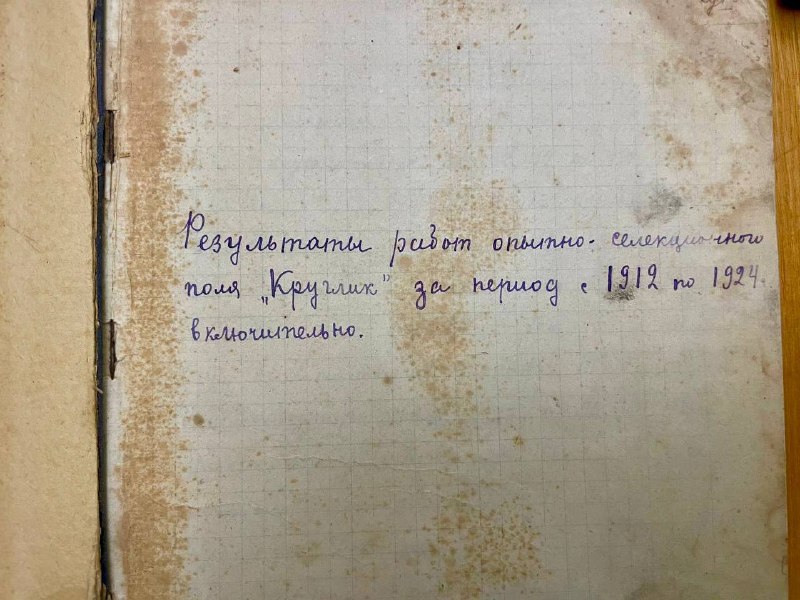 Результаты работ опытно-селекционного
поля „Круглик" за период с 1912 по 1924.
включительно.